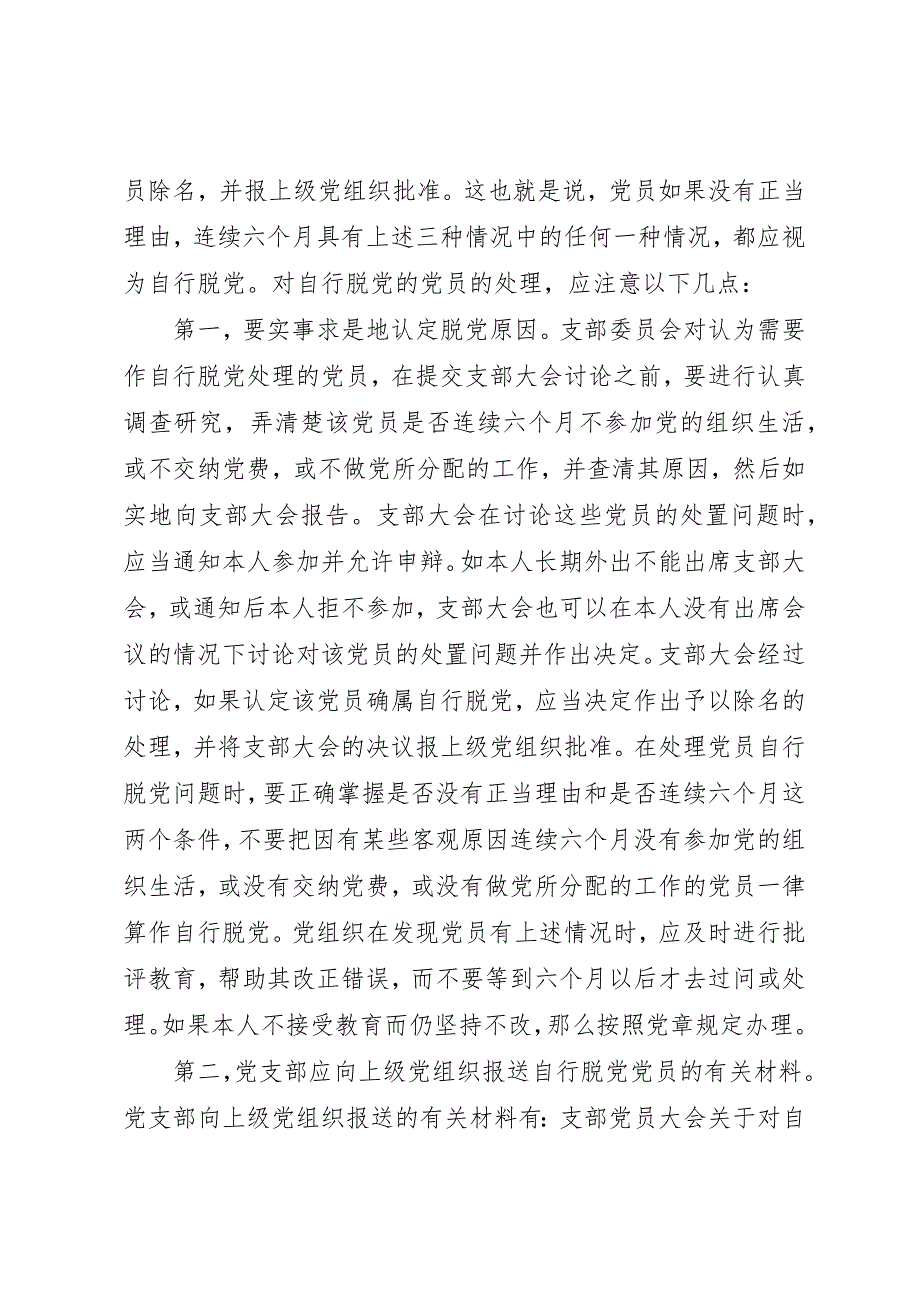 员除名，并报上级党组织批准。这也就是说，党员如果没有正当
理由，连续六个月具有上述三种情况中的任何一种情况，都应视
为自行脱党。对自行脱党的党员的处理，应注意以下几点：
第一，要实事求是地认定脱党原因。支部委员会对认为需要
作自行脱党处理的党员，在提交支部大会讨论之前，要进行认真
调查研究，弄清楚该党员是否连续六个月不参加党的组织生活，
或不交纳党费，或不做党所分配的工作，并查清其原因，然后如
实地向支部大会报告。支部大会在讨论这些党员的处置问题时，
应当通知本人参加并允许申辩。如本人长期外出不能出席支部大
会，或通知后本人拒不参加，支部大会也可以在本人没有出席会
议的情况下讨论对该党员的处置问题并作出决定。支部大会经过
讨论，如果认定该党员确属自行脱党，应当决定作出予以除名的
处理，并将支部大会的决议报上级党组织批准。在处理党员自行
脱党问题时，要正确掌握是否没有正当理由和是否连续六个月这
两个条件，不要把因有某些客观原因连续六个月没有参加党的组
织生活，或没有交纳党费，或没有做党所分配的工作的党员一律
算作自行脱党。党组织在发现党员有上述情况时，应及时进行批
评教育，帮助其改正错误，而不要等到六个月以后才去过问或处
理。如果本人不接受教育而仍坚持不改，那么按照党章规定办理。
第二，党支部应向上级党组织报送自行脱党党员的有关材料。
党支部向上级党组织报送的有关材料有：支部党员大会关于对自